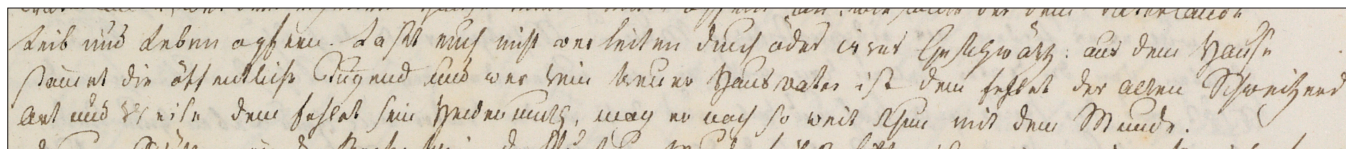 der dem Vaterlande
Leib und Leben opfern. Laßt euch nicht verleiten durch ödes irres Geschwätz: aus dem Hause
stamet die öffentliche Tugend und wer kein treuer Hausvater ist dem fehlet der alten Schweitzer
Art und Weise dem fehlet sein Heldenmuth, mag er noch so weit thun mit dem Munde.